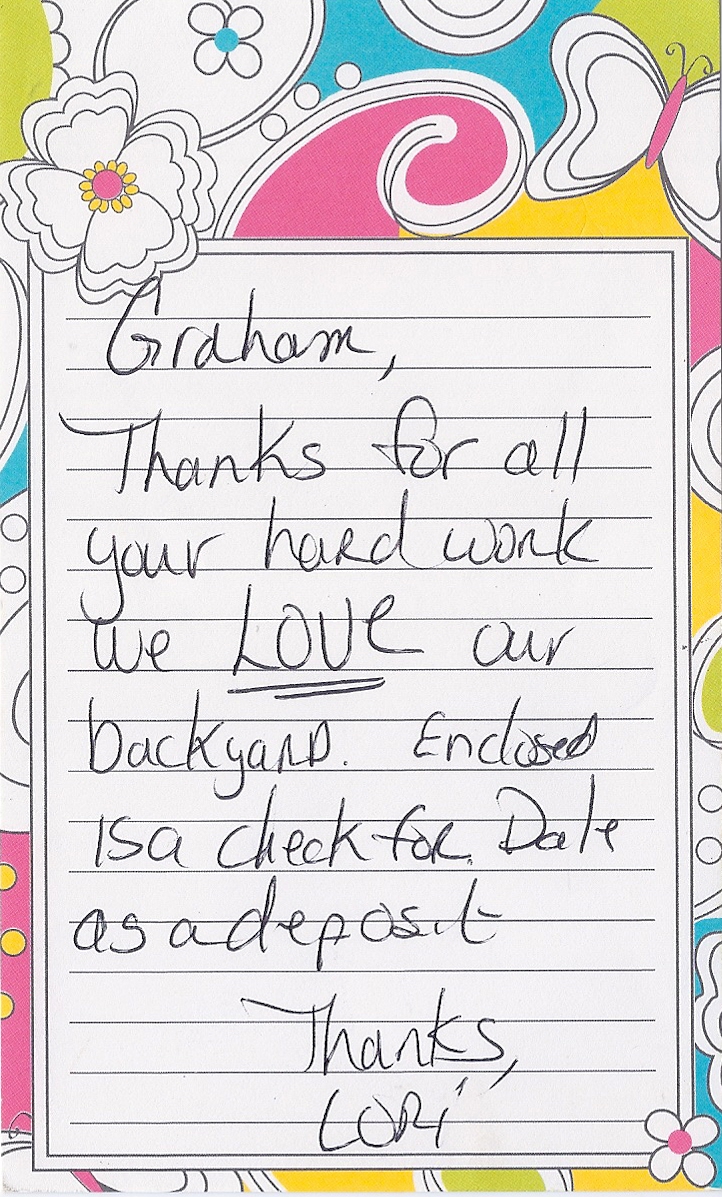 Graham,
Thanks for all
your hard work
we LOVE our
backyard. Enclosed
is a check for Dale
as a deposit
Thanks,
LORi